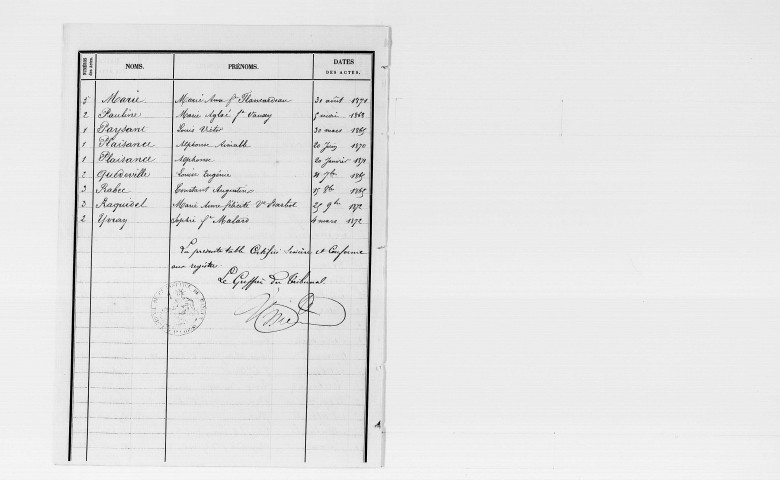 NUMÉROS des actes. NOMS. PRÉNOMS. DATES DES ACTES.
5 Marie Marie Anne fe 31 août 1871
2 Pauline Marie Aglaé fe 1868
1 Paysant Louis Victor 30 mars 1865
1 Plaisance Alphonse Aimable 20 Juin 1870
1 Plaisance Alphonse 20 Janvier 1871
2 Quedeville Louise Eugénie 21 7bre 1865
3 Rabec Constant Augustin 15 8bre 1865
3 Raquidel Marie Anne félicité Ve 25 9bre 1872
2 Yvray Sophie fe Matard 4 mars 1872
La présente table Certifiée Sincère et Conforme
aux registres.
Le Greffier du Tribunal.